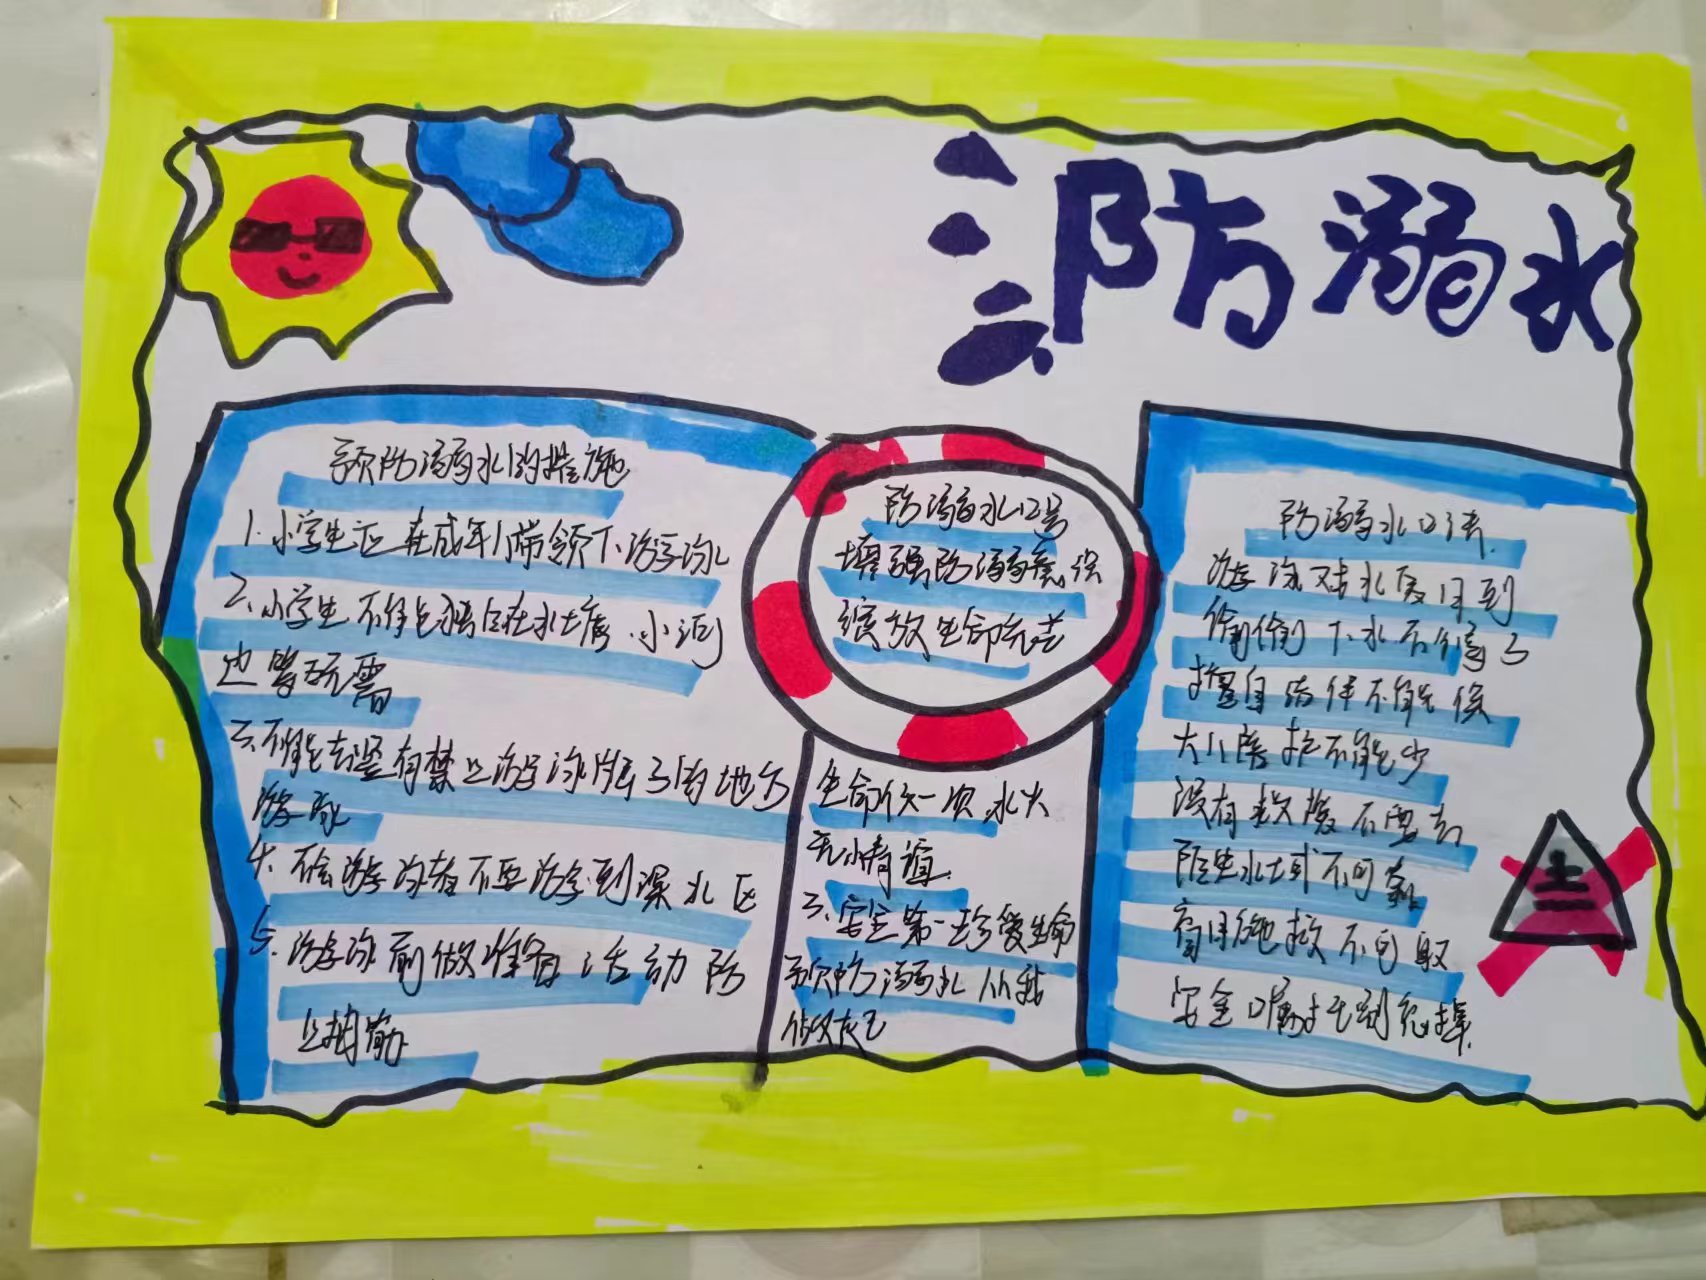 防溺水
预防溺水的措施
1.小学生应在成年人带领下游泳
2.小学生不能独自在水库、小河
边
3.不能去设有禁止游泳牌子的地方
游泳
4.不会游泳者不要游到深水区
5.游泳前做准备活动防
止抽筋
防溺水口号
增强防溺意识
缤放生命光芒
生命仅一次,水火
无小情谊
3.安全第一珍爱生命
预防溺水从我
做起
防溺水口诀
游泳戏水夏日到
偷偷下水不得了
擅自结伴不能
大人陪护不能少
没有救援不要去
陌生水域不可靠
盲目施救不可取
安全